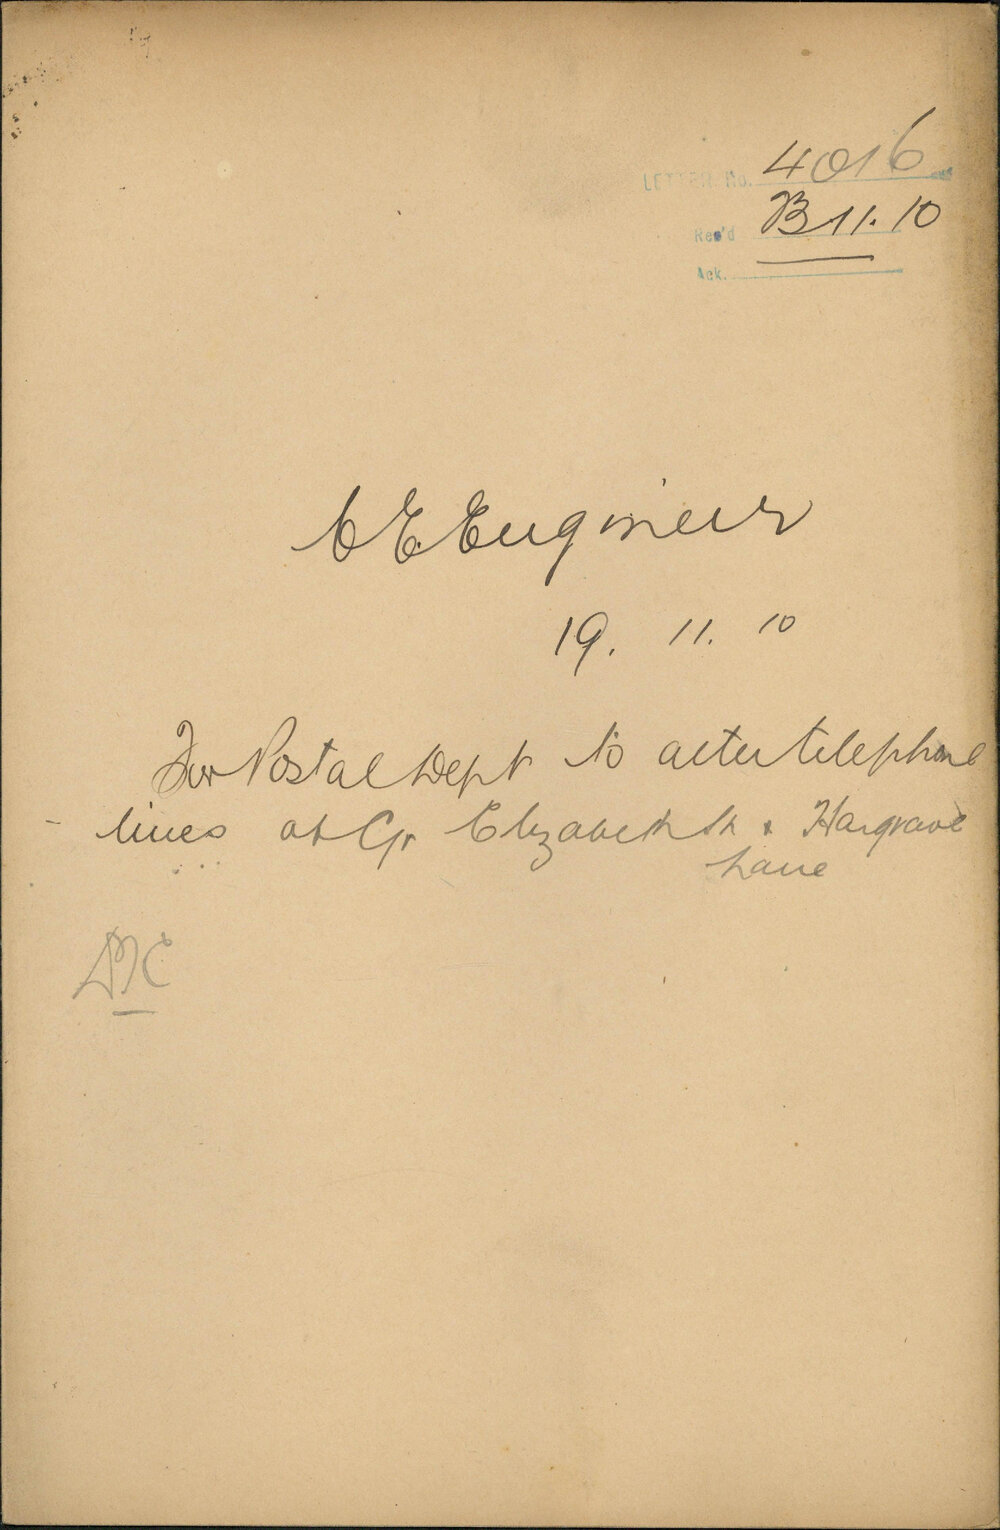 LETTER No. 4016
Rec'd B 11. 10
Ack.
C E Engineer
19. 11. 10
For Postal Dept to alter telephone
lines at Cr Elizabeth St & Hargrave
Lane